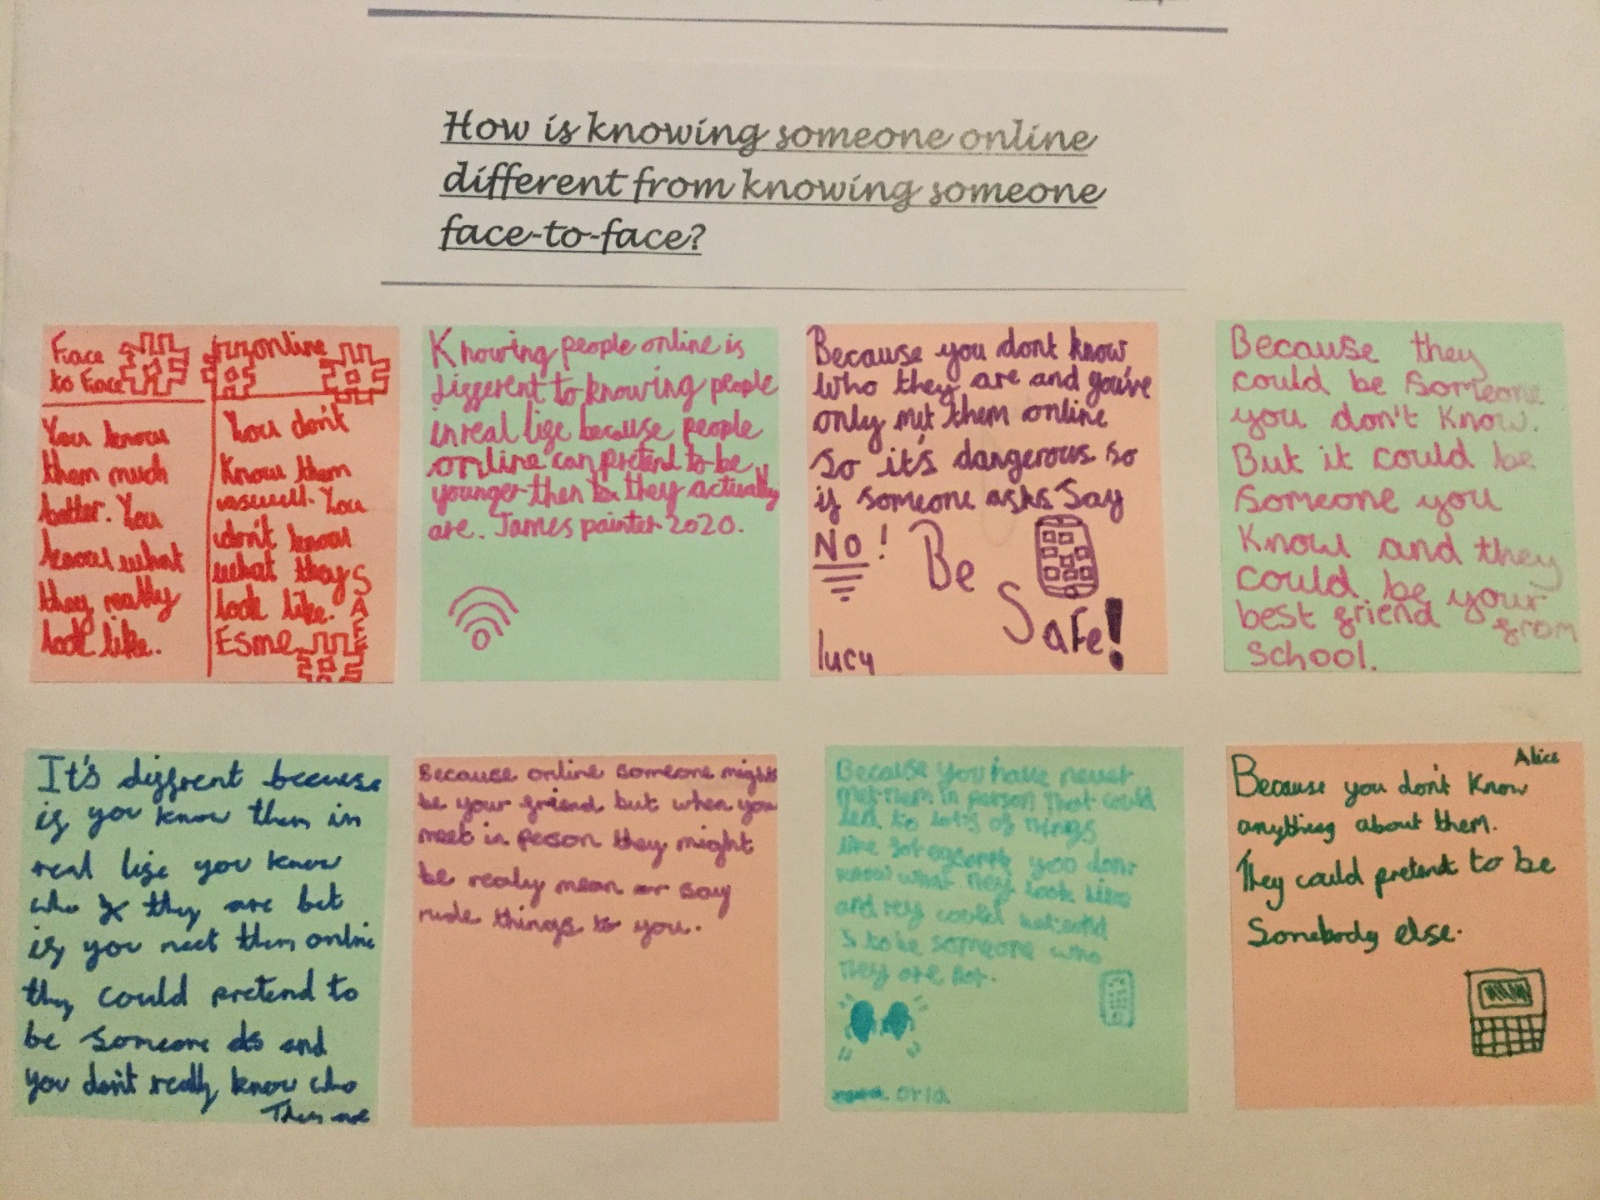 How is knowing someone online
different from knowing someone
face-to-face?
Face
to Face
You know
them much
better. You
know what
they really
look like.
online
You don't
know them
aswell. You
don't know
what they
look like.
Esme
SAFE
Knowing people online is
different to knowing people
in real life because people
online can pretend to be
younger then they actually
are. James painter 2020.
Because you dont know
who they are and you've
only met them online
So it's dangerous so
if someone asks Say
No!
Be
Safe!
lucy
Because they
could be someone
you don't know.
But it could be
someone you
know and they
could be your
best friend from
school.
It's diffrent becuese
if you know them in
real life you know
who they are but
if you meet them online
they could pretend to
be someone els and
you don't really know who
They are
Because online someone might
be your friend but when you
meet in person they might
be realy mean or say
rude things to you.
Because you have never
met them in person That could
led to lots of things
like you dont
know what they look like
and they could
to be someone who
They are not.
orla
Alice
Because you don't know
anything about them.
They could pretend to be
Somebody else.